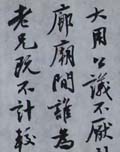 大用公議不厭
廊廟間誰為
老兄既不計較